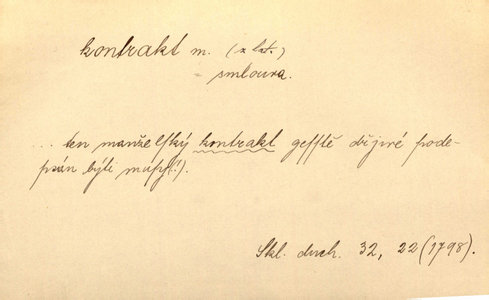 kontrakt m. (z lat.)
= smlouva.
... ten manželſký kontrakt geſſtě dřjwé pode-
psán býti muſy(!).
Skl. duch. 32, 22 (1798).